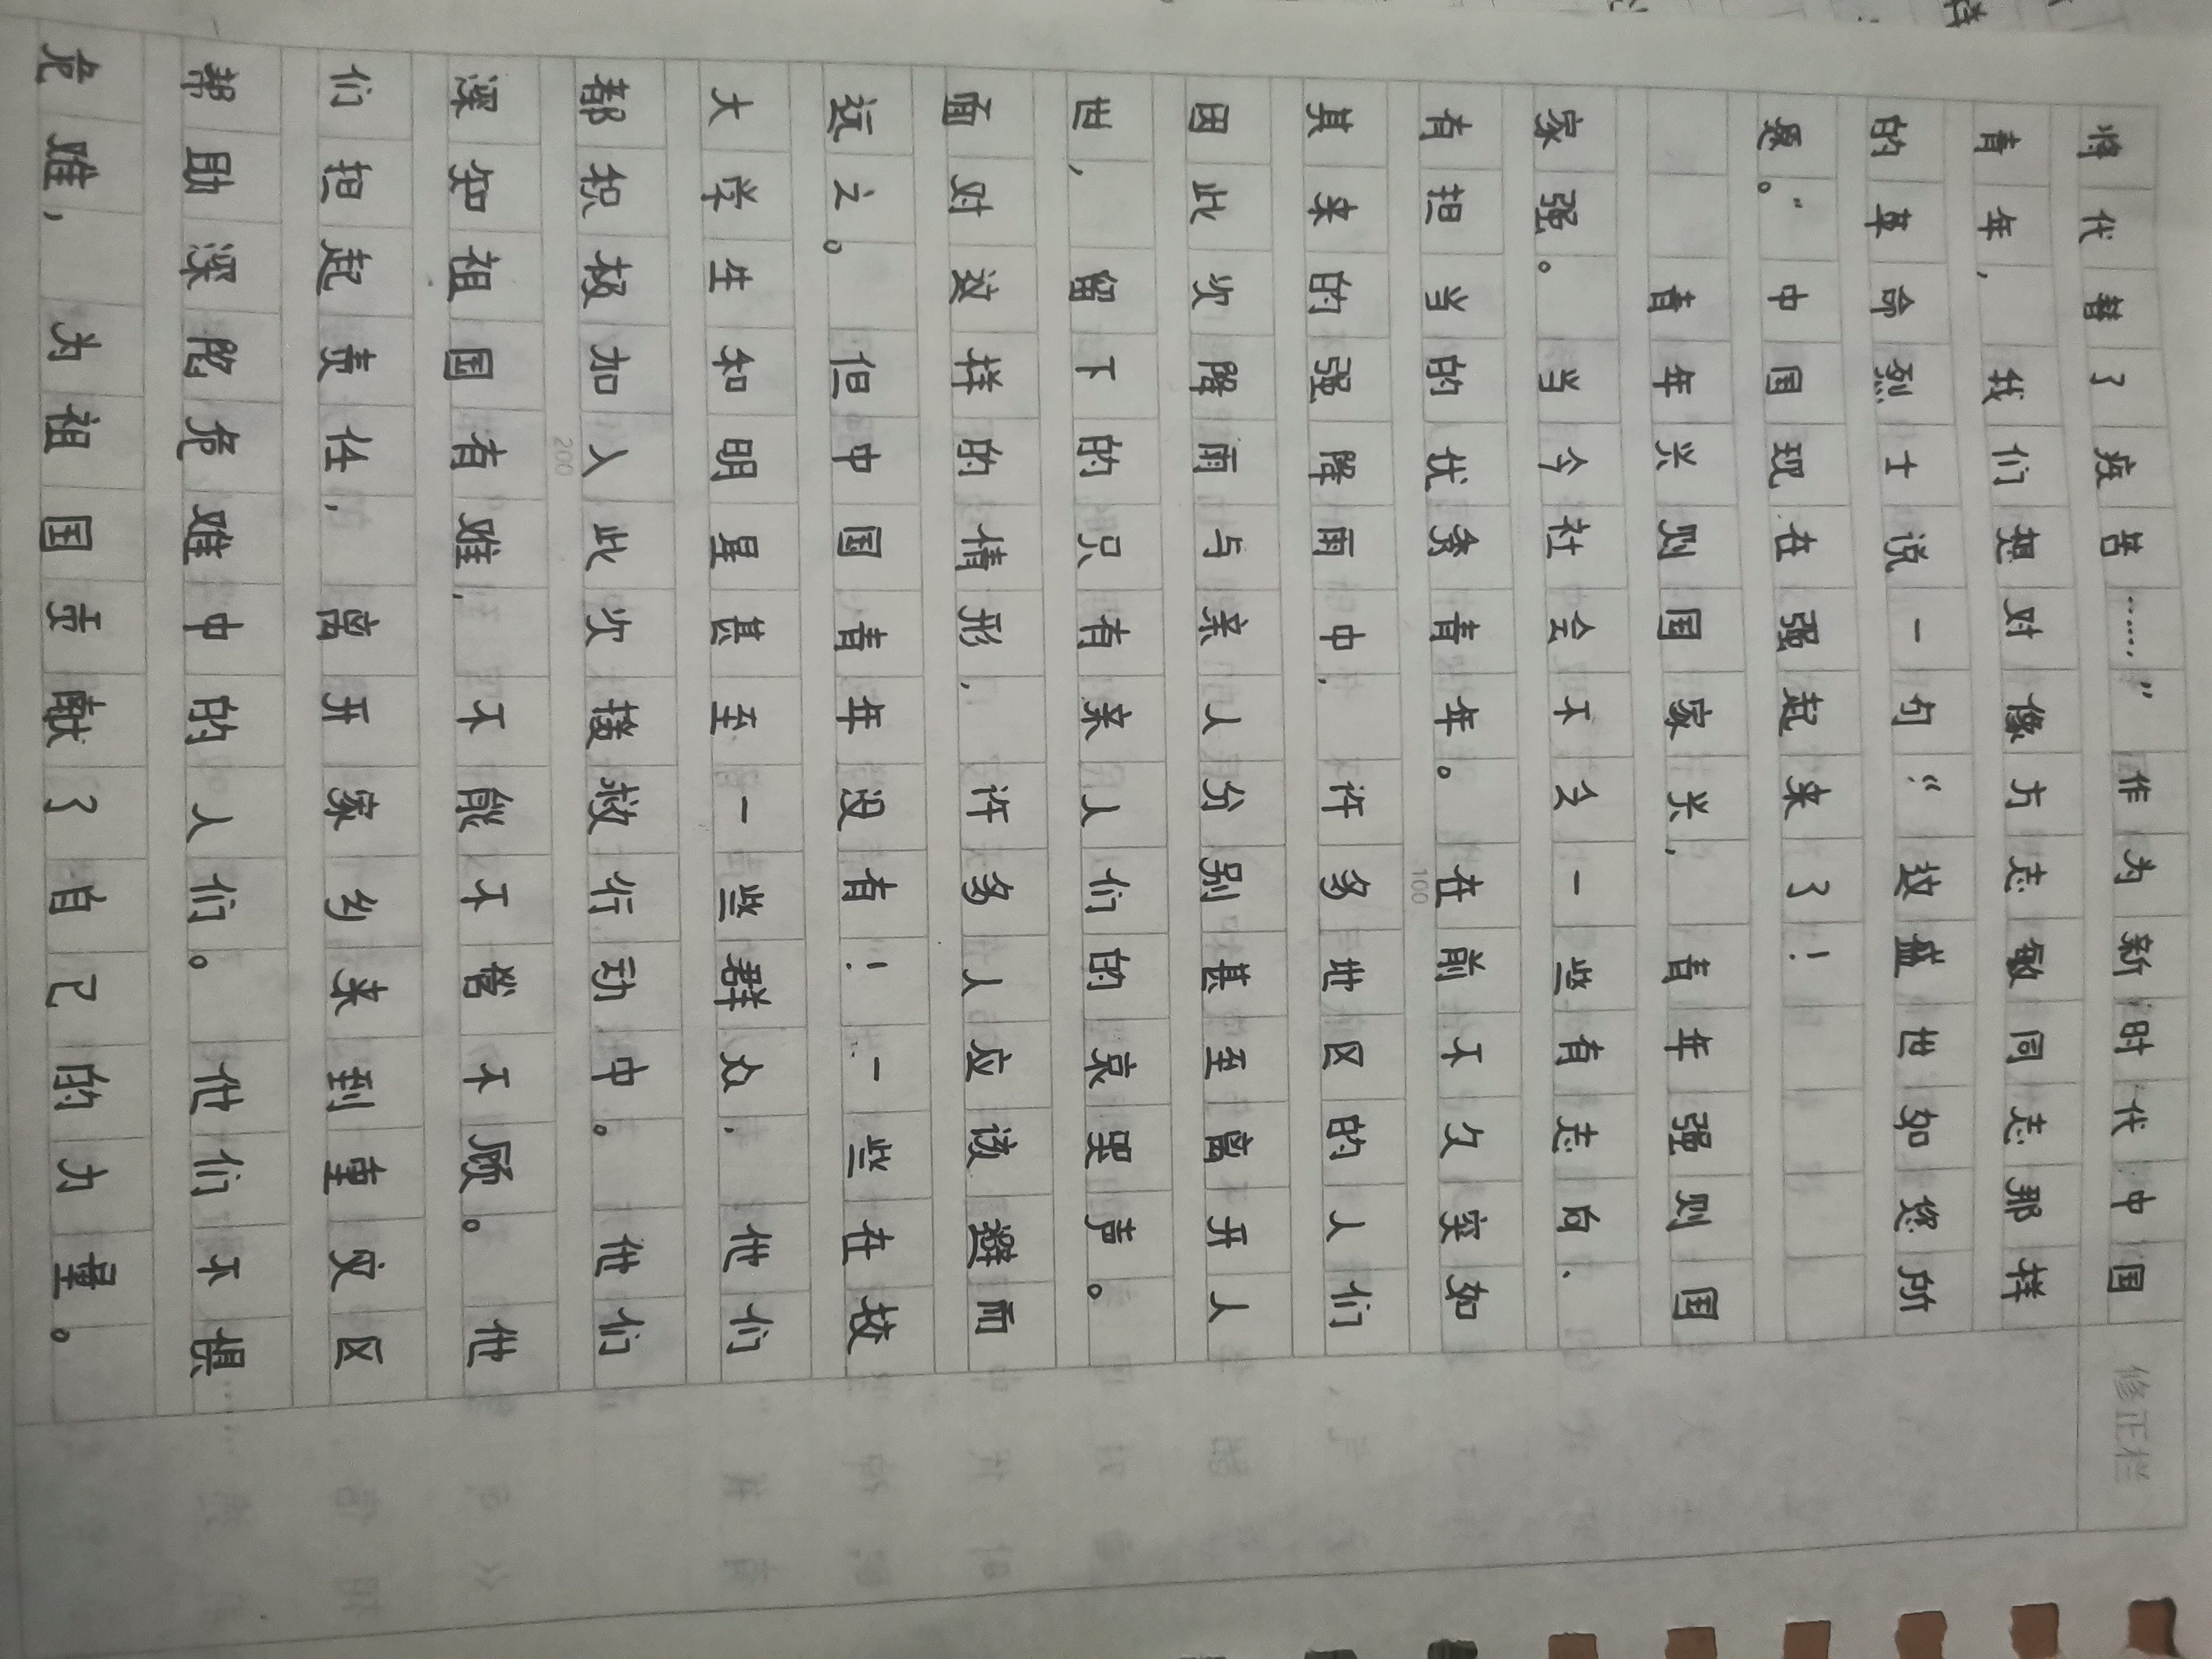 将代替了疾苦……”作为新时代中国
青年，我们想对像方志敏同志那样
的革命烈士说一句“这盛世如您所
愿。”中国现在强起来了！
青年兴则国家兴，青年强则国
家强。当今社会不乏一些有志向、
有担当的优秀青年。在前不久突如
其来的强降雨中，许多地区的人们
因此次降雨与亲人分别甚至离开人
世，留下的只有亲人们的哀哭声。
面对这样的情形，许多人应该避而
远之。但中国青年没有！一些在校
大学生和明星甚至一些群众，他们
都积极加入此次援救行动中。他们
深知祖国有难，不能不管不顾。他
们担起责任，离开家乡来到重灾区
帮助深陷危难中的人们。他们不惧
危难，为祖国贡献了自己的力量。
修正栏
100
200